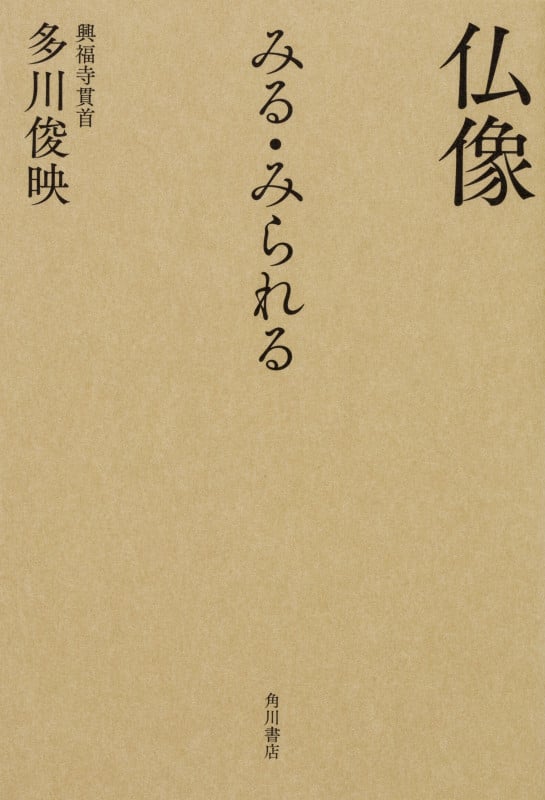 仏像
みる・みられる
興福寺貫首
多川俊映
角川書店